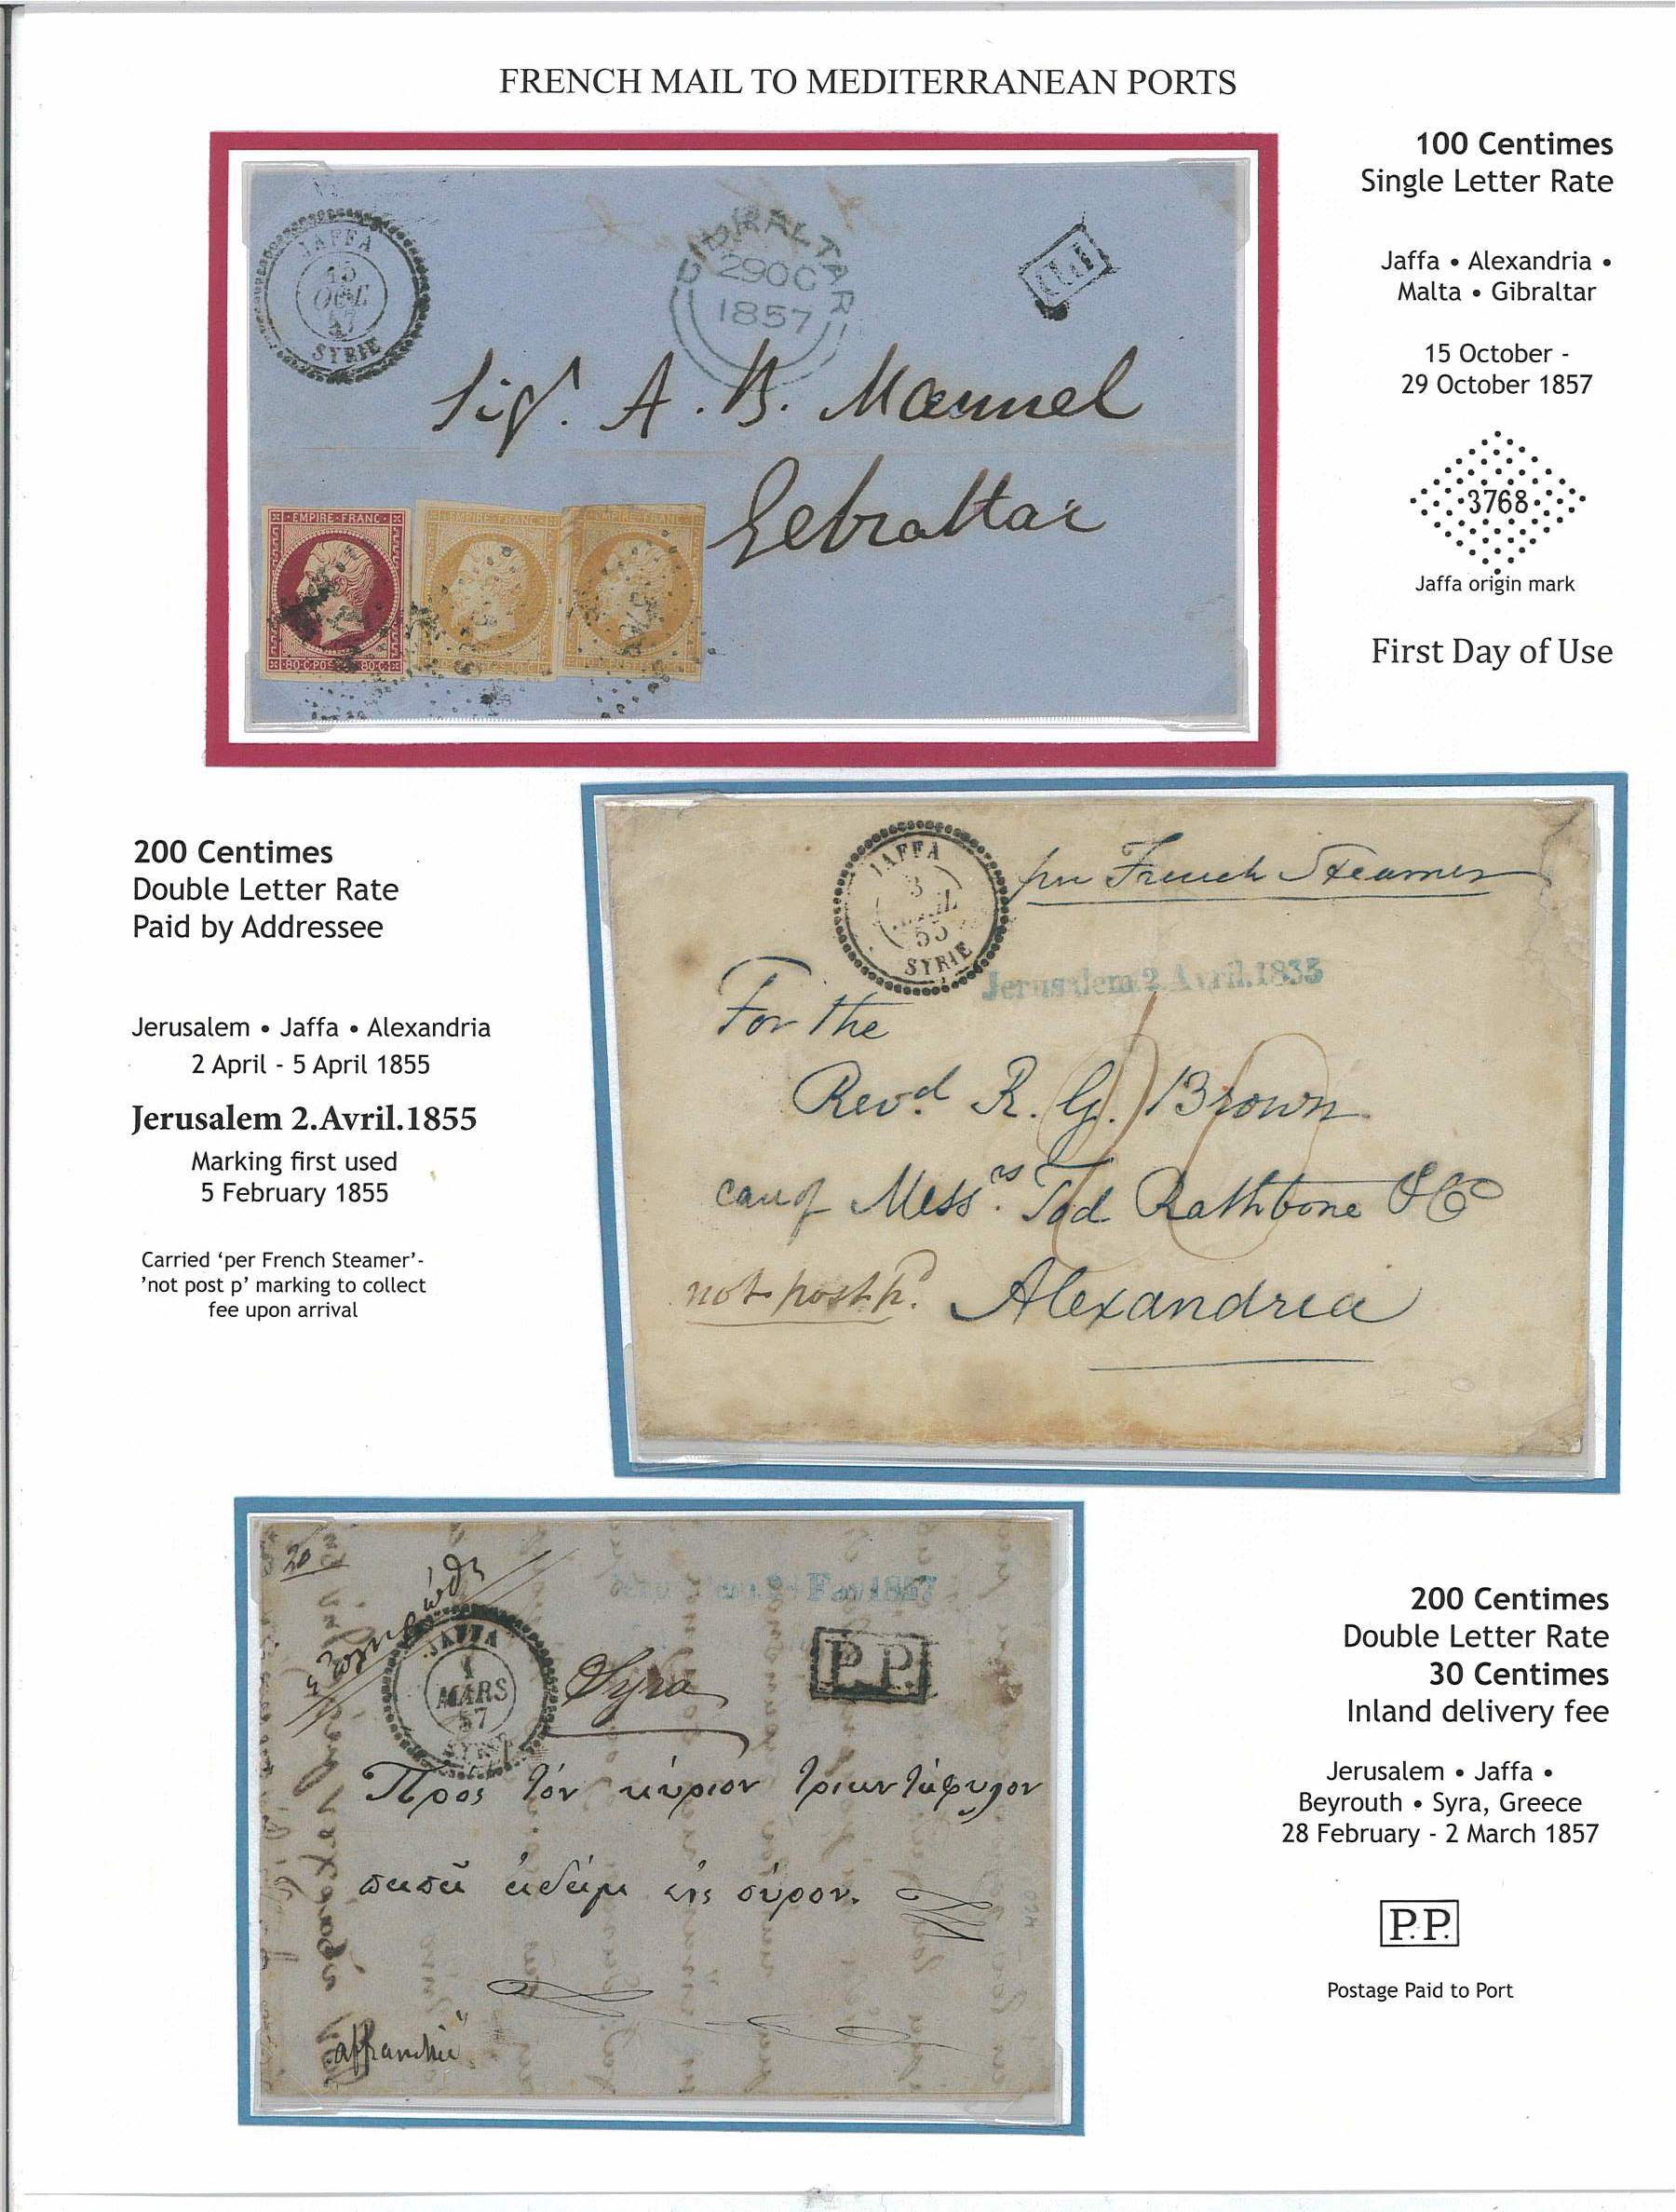 FRENCH MAIL TO MEDITERRANEAN PORTS
100 Centimes
Single Letter Rate
Jaffa • Alexandria •
Malta • Gibraltar
15 October -
29 October 1857
3768
Jaffa origin mark
First Day of Use
JAFFA
15
OCT.
57
SYRIE
GIBRALTAR
29OC
1857
Sigr. A. B. Manuel
Gebraltar
EMPIRE FRANC
80 C POSTES 80 C
EMPIRE FRANC
EMPIRE FRANC
200 Centimes
Double Letter Rate
Paid by Addressee
Jerusalem • Jaffa • Alexandria
2 April - 5 April 1855
Jerusalem 2.Avril.1855
Marking first used
5 February 1855
Carried ‘per French Steamer’-
’not post p’ marking to collect
fee upon arrival
JAFFA
3
55
SYRIE
per French Steamer
Jerusalem 2 Avril.1855
For the
Revd. R. G. Brown
care of Messrs. Tod Rathbone & Co
not post pd.
Alexandria
200 Centimes
Double Letter Rate
30 Centimes
Inland delivery fee
Jerusalem • Jaffa •
Beyrouth • Syra, Greece
28 February - 2 March 1857
P.P.
Postage Paid to Port
20
1857
JAFFA
1
MARS
57
SYRIE
Syra
P.P.
Προς τόν κύριον τριαντάφυλον
παπα αδάμ εις σύρον.
affranchie